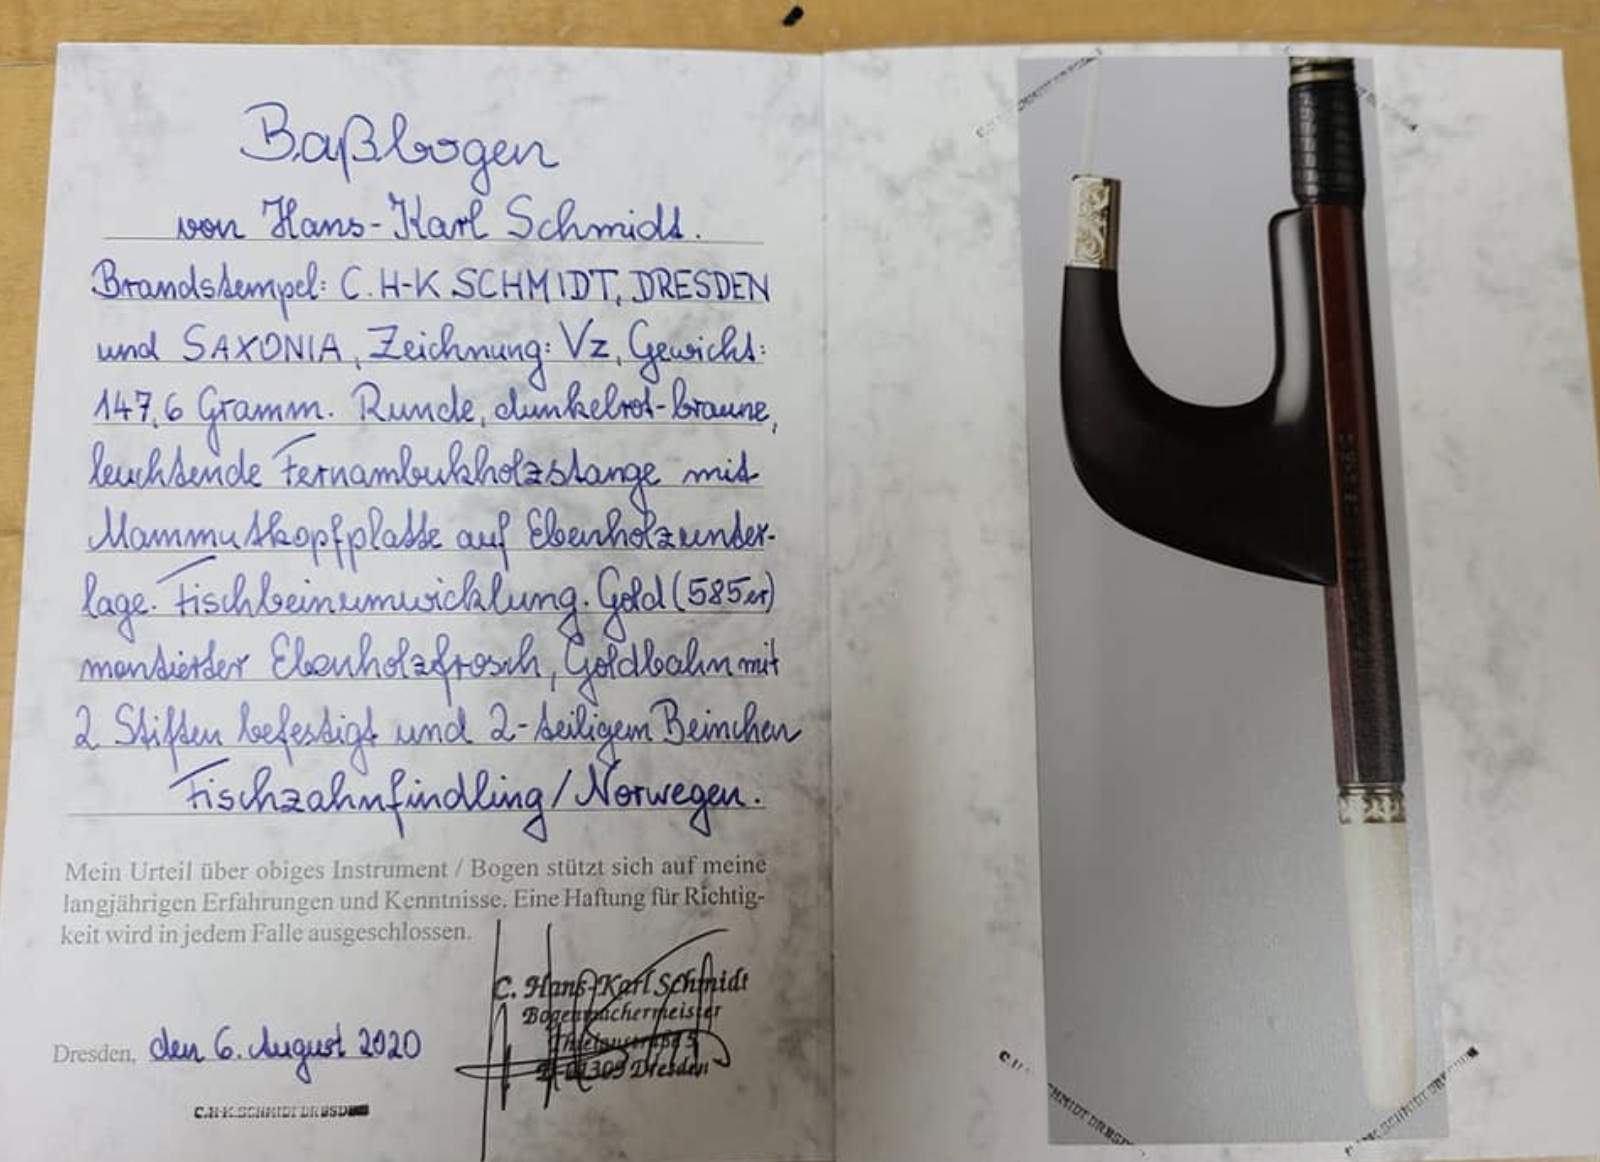 Baßbogen
von Hans-Karl Schmidt.
Brandstempel: C.H-K SCHMIDT, DRESDEN
und SAXONIA, Zeichnung: Vz, Gewicht:
147,6 Gramm. Runde, dunkelrot-braune,
leuchtende Fernambukholzstange mit
Mammutkopfplatte auf Ebenholzunter-
lage. Fischbeinumwicklung. Gold (585er)
montierter Ebenholzfrosch, Goldbahn mit
2 Stiften befestigt und 2-teiligem Beinchen
Fischzahnfindling/Norwegen.
Mein Urteil über obiges Instrument / Bogen stützt sich auf meine
langjährigen Erfahrungen und Kenntnisse. Eine Haftung für Richtig-
keit wird in jedem Falle ausgeschlossen.
C. Hans-Karl Schmidt
Bogenmachermeister
01309 Dresden
Dresden, den 6. August 2020
C.H-K.SCHMIDT DRESDEN